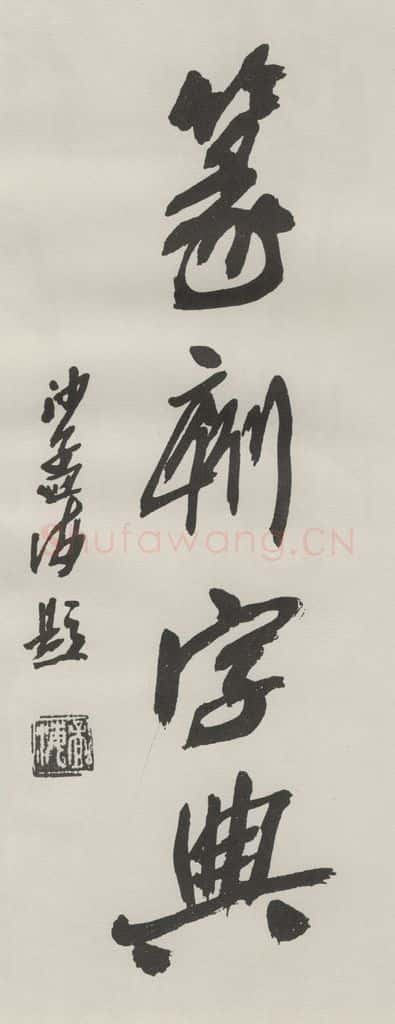 篆刻字典
沙孟海题
Shufawang.CN